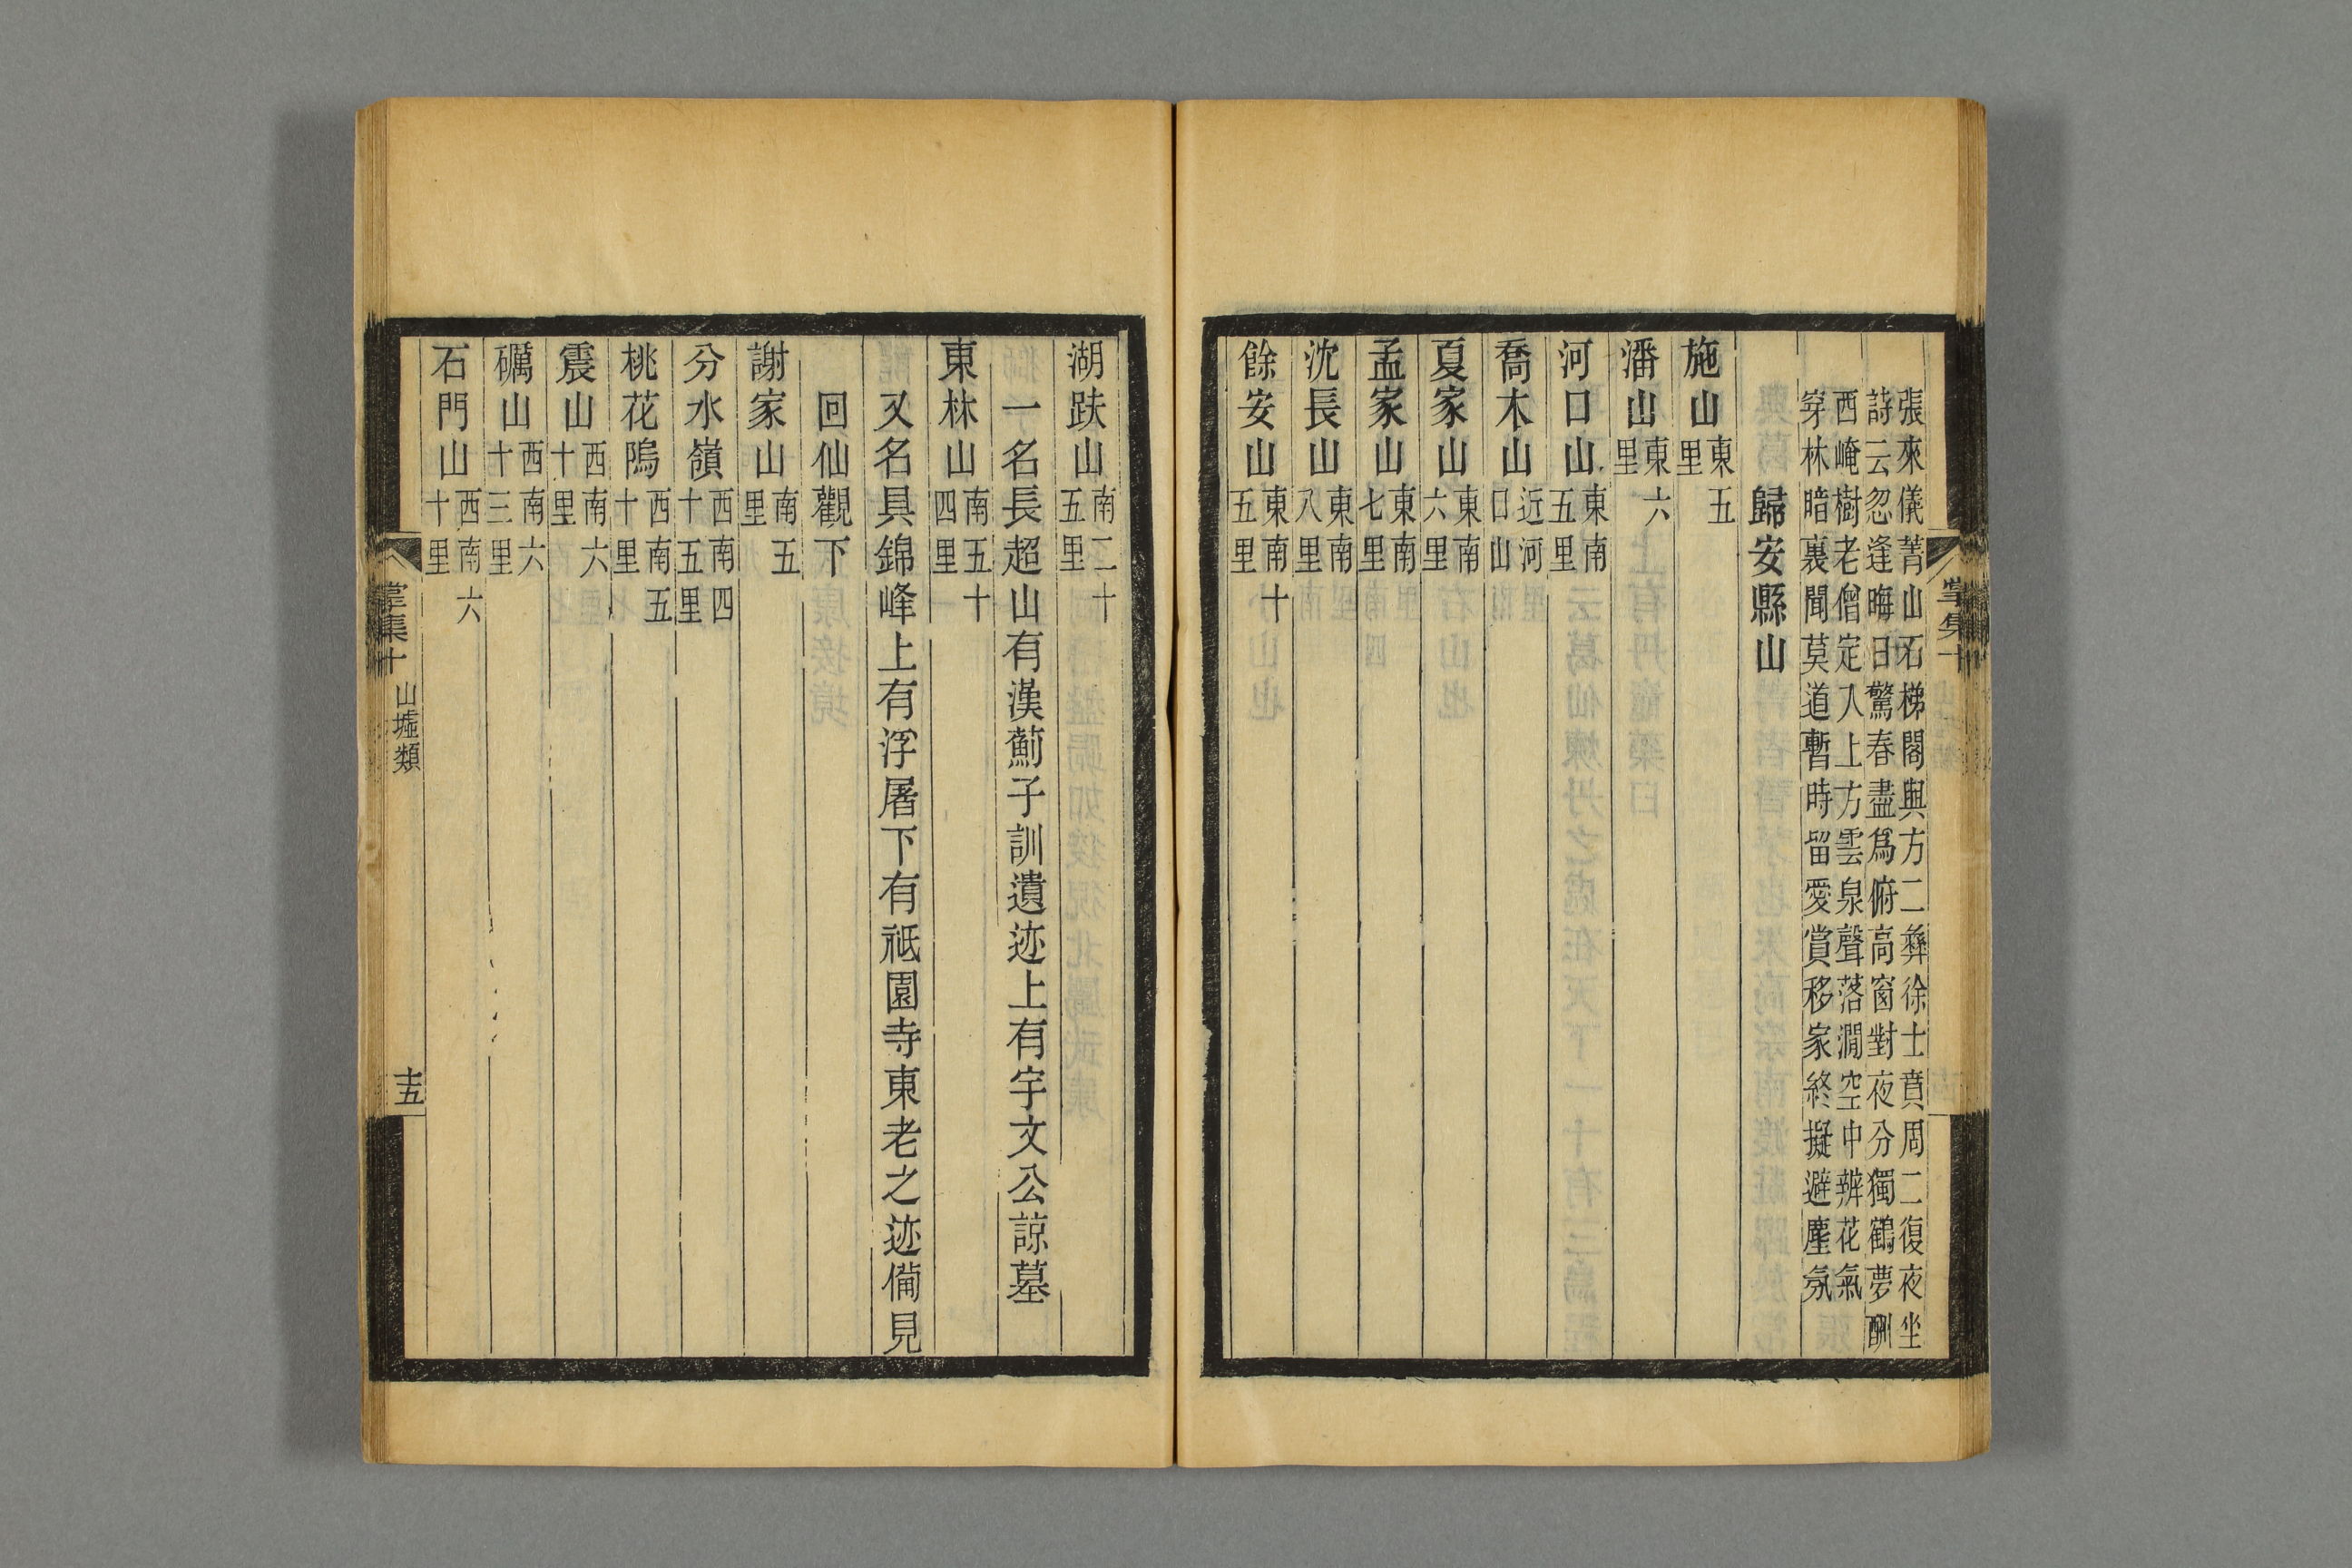 張來儀菁山石梯閣與方二彝徐士賁周二復夜坐
詩云忽逢晦日驚春盡爲俯高窗對夜分獨鶴夢酬
西崦樹老僧定入上方雲泉聲落澗空中辨花氣
穿林暗裏聞莫道暫時留愛賞移家終擬避塵氛
歸安縣山
施山東五里
潘山東六里
河口山東南五里
喬木山近河口山
夏家山東南六里
孟家山東南七里
沈長山東南八里
餘安山東南十五里
湖趺山南二十五里
一名長超山有漢薊子訓遺迹上有宇文公諒墓
東林山南五十四里
又名具錦峰上有浮屠下有祗園寺東老之迹備見
回仙觀下
謝家山南五里
分水嶺西南四十五里
桃花隖西南五十里
震山西南六十里
礪山西南六十三里
石門山西南六十里
掌集十
山墟類
十五